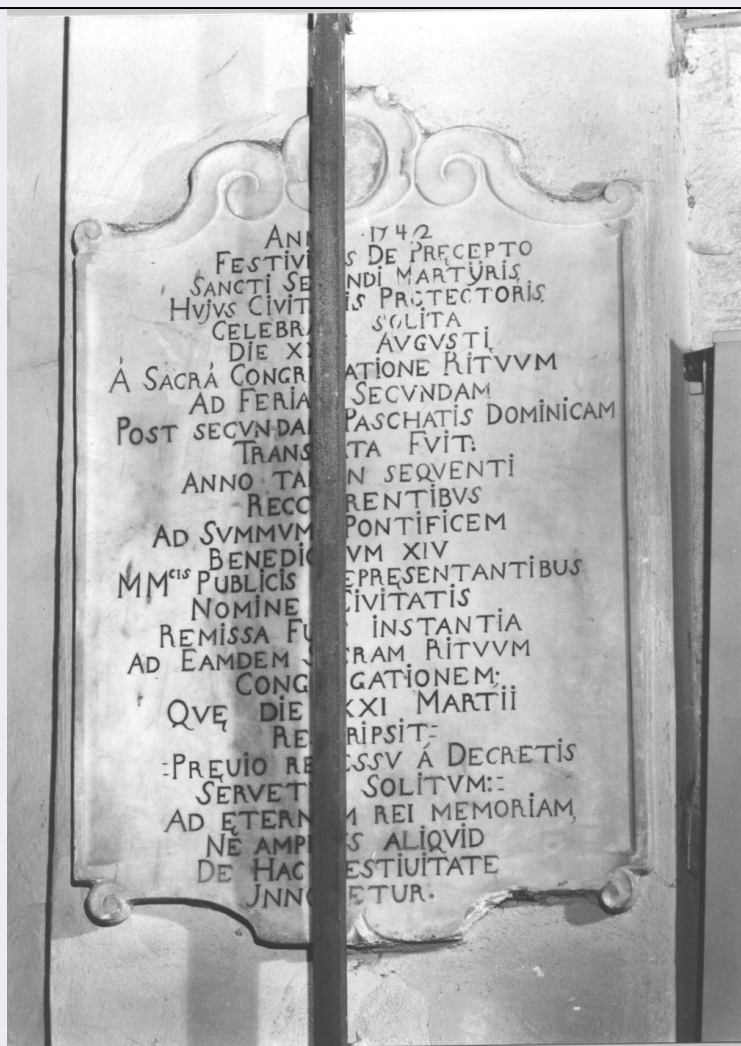 ANNO 1742
FESTIVITAS DE PRĘCEPTO
SANCTI SECUNDI MARTYRIS
HUJUS CIVITATIS PROTECTORIS
CELEBRARI SOLITA
DIE AVGVSTI,
Á SACRÁ CONGREGATIONE RITVVM
AD FERIAM SECVNDAM
POST SECVNDAM PASCHATIS DOMINICAM
TRANSLATA FVIT:
ANNO TAMEN SEQVENTI
RECCURRENTIBVS
AD SVMMVM PONTIFICEM
BENEDICTVM XIV
MM^CIS PUBLICIS REPRĘSENTANTIBUS
NOMINE CIVITATIS
REMISSA FUIT INSTANTIA
AD EAMDEM SACRAM RITVVM
CONGREGATIONEM;
QVĘ DIE XXI MARTII
RESCRIPSIT=
=PRĘUIO RECESSV Á DECRETIS
SERVETVR SOLITVM::=
AD ĘTERNAM REI MEMORIAM,
NE AMPLIUS ALIQVID
DE HAC FESTIUITATE
JNNOUETUR.